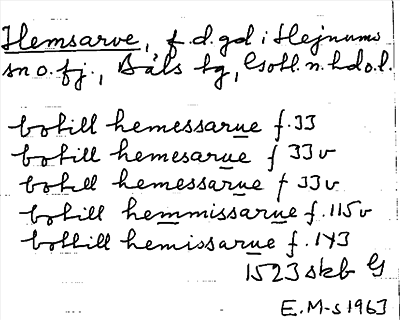 Hemsarve, f.d. gd i Hejnums
sn o. fj., Bäls tg, Gotl. n. hd o. l.
botill hemessarue f. 33
botill hemesarue f 33v
botell hemessarue f 33v
botill hemmissarue f. 115v
bottill hemissarue f. 143
1523 skb G
E. M-s 1963